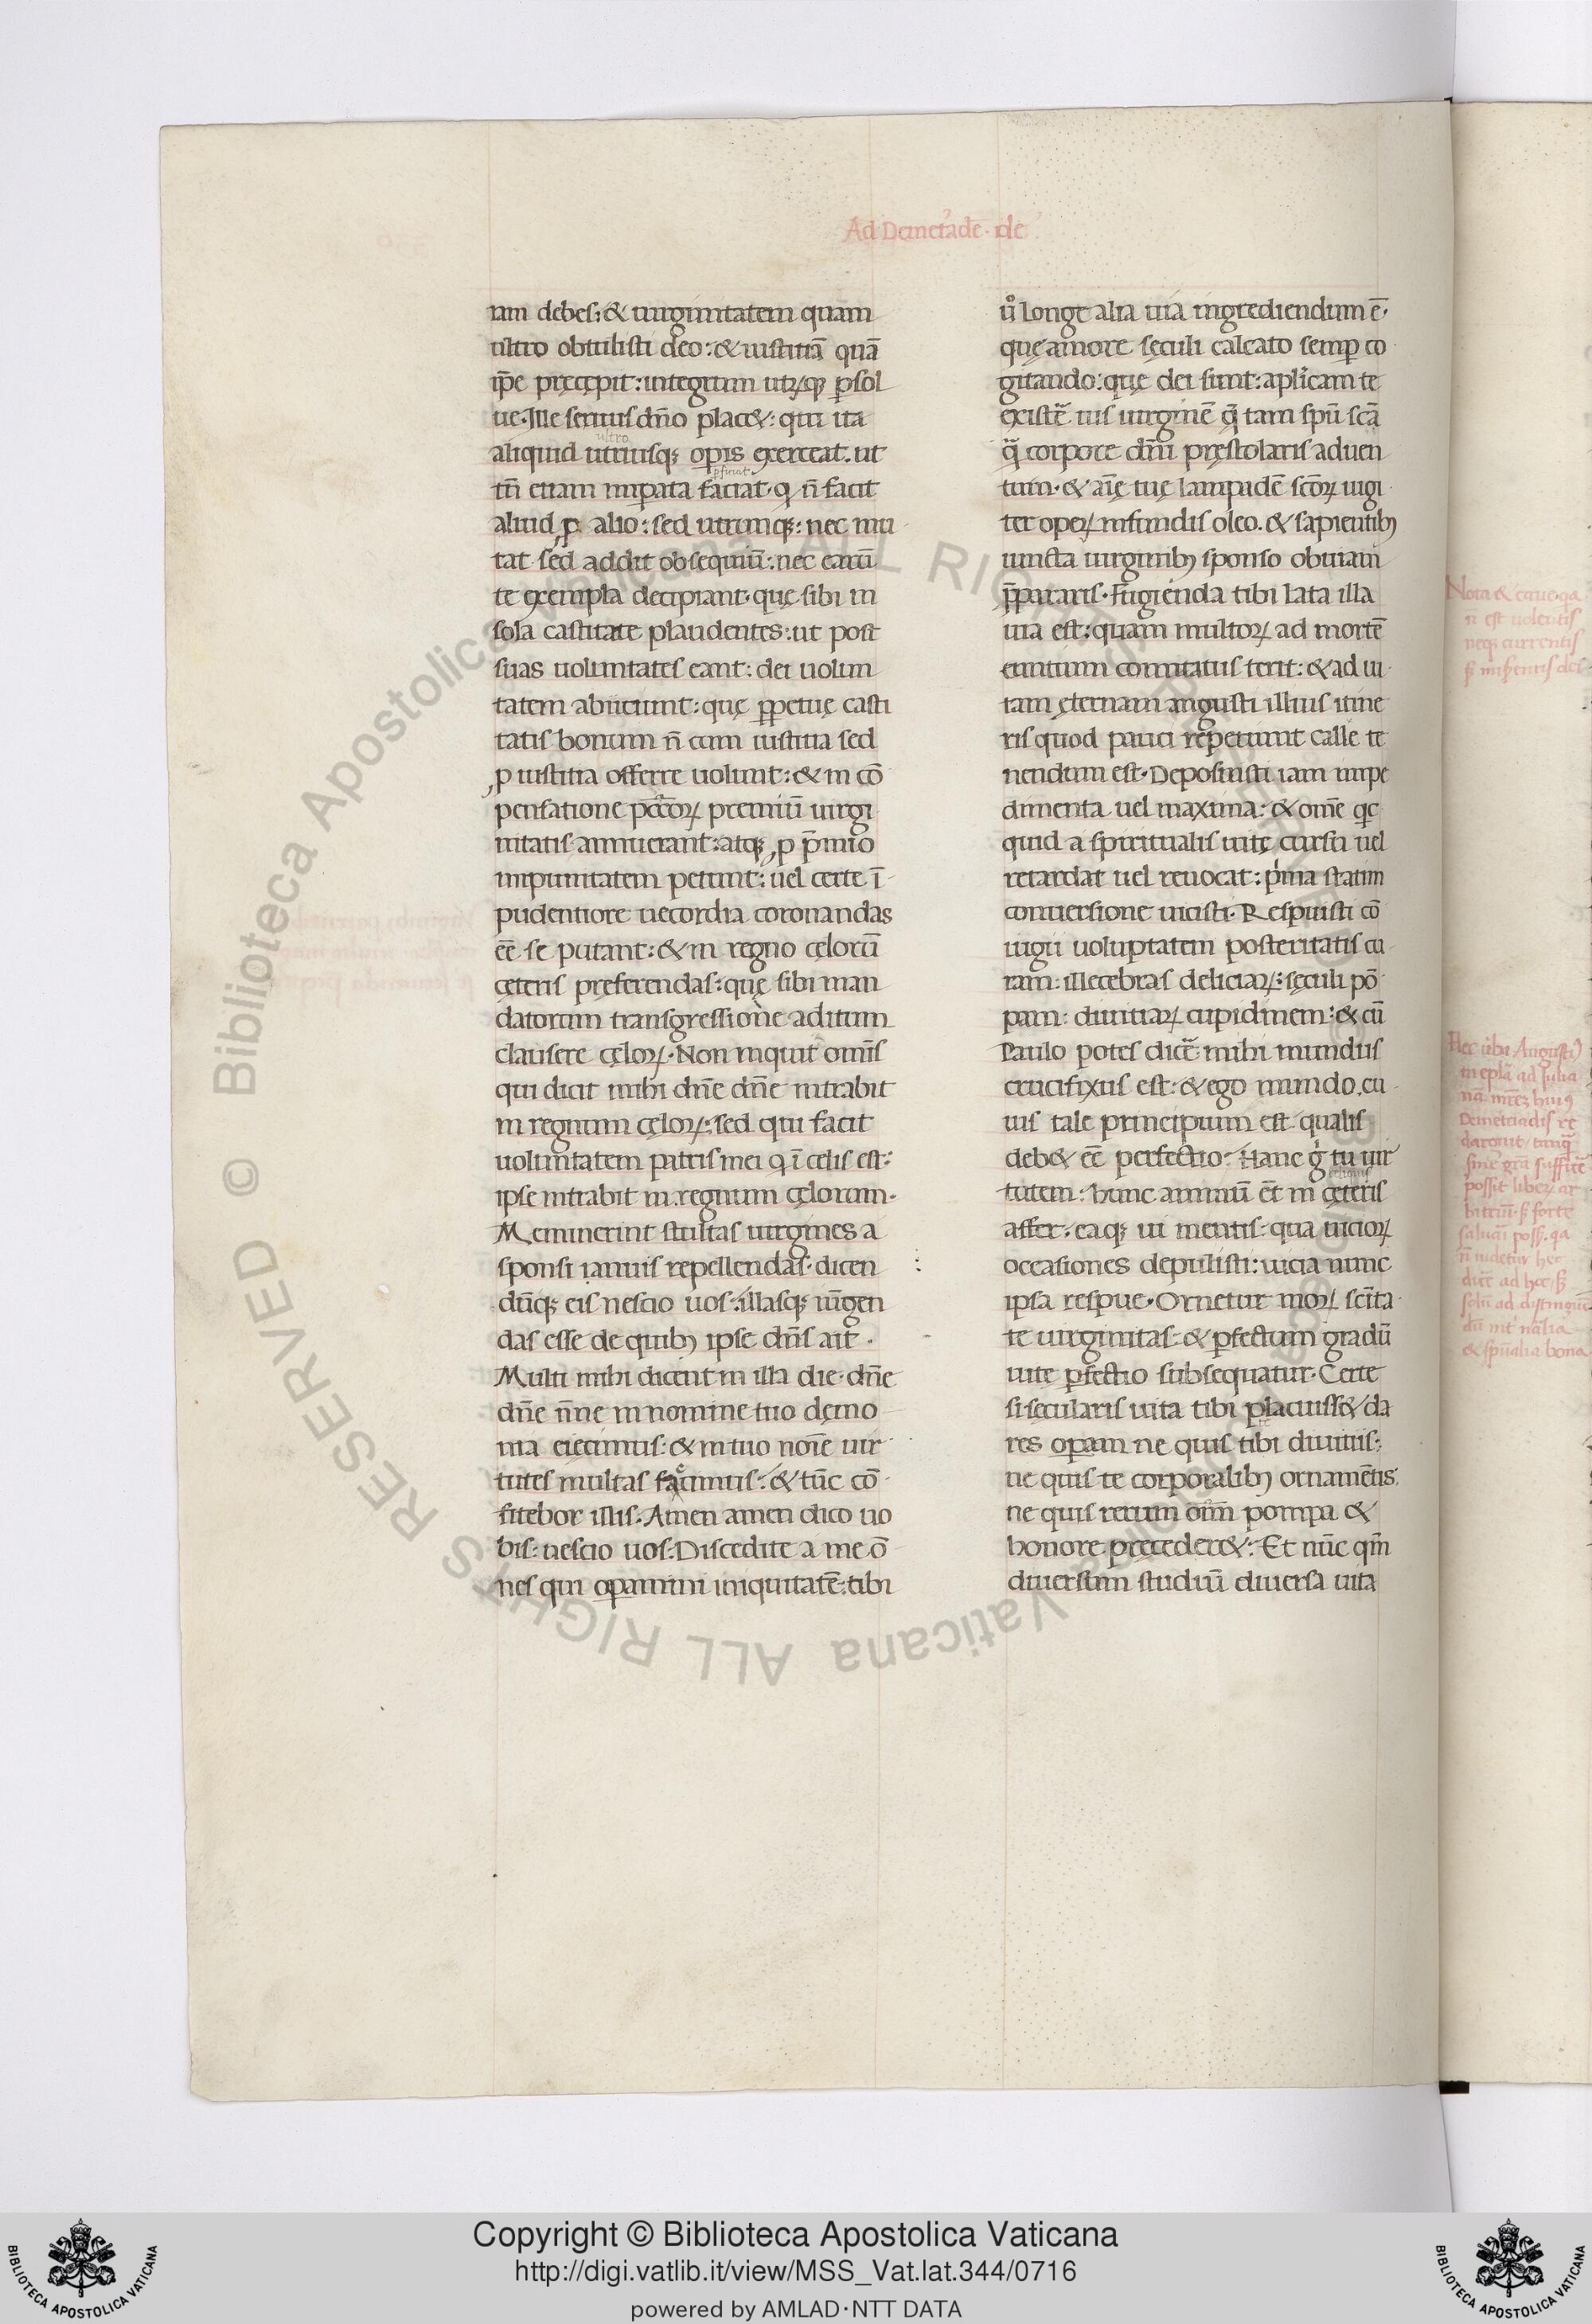 Ad Demet'adē · de
iam debes: & uirginitatem quam
ultro obtulisti deo: & iustitiā quā
ip̄e pręcępit: integrum utrꝙ ꝑsol
ue. Ille seruus dn̄o plac&: qui ita
ultro
aliquid utriusq; oꝑis exerceat. ut
tn̄ etiam imꝑata faciat. q n̄ facit
aliud ꝓ alio: sed utrunq;: nec mu
tat sed addit obsequiū: nec earū
te exempla decipiant. quę sibi in
sola castitate plaudentes: ut post
suas uoluntates eant: dei uolun
tatem abiiciunt: quę ꝑpetuę casti
tatis bonum n̄ cum iustitia sed
ꝓ iustitia offerre uolunt: & in cō
pensatione pccōꝝ premiū uirgi
nitatis annuerant: atq; ꝓ p̄mio
impunitatem petunt: uel certe ī
pudentiore uecordia coronandas
ēē se putant: & in regno cęlorū
cęteris preferendas: quę sibi man
datorum transgressione aditum
clausere cęloꝝ. Non inquit omīs
qui dicit mihi dn̄e dn̄e intrabit
in regnum cęloꝝ: sed qui facit
uoluntatem patris mei q ī celis est:
ipse intrabit in regnum cęlorum.
Meminerint stultas uirgines a
sponsi ianuis repellendas. dicen
dūq; eis nescio uos: illasq; iūgen
das esse de quibꝫ ipse dn̄s ait.
Multi mihi dicent in illa die. dn̄e
dn̄e n̄ne in nomine tuo dęmo
nia eiecimus: & in tuo noīe uir
tutes multas facimus: & tūc cō
fitebor illis. Amen amen dico uo
bis: nescio uos: Discedite a me ō
nes qui oꝑamini iniquitatē: tibi
ůo longe alia uia ingrediendum ē.
quę amore sęculi calcato semꝑ co
gitando: quę dei sunt: aplicam te
existē uis uirginē q̄ tam spū scā
q̄ corpore dn̄i pręstolaris aduen
tum. & aīę tuę lampadē scōꝝ iugi
ter opeꝝ infundis oleo. & sapientibꝫ
iuncta uirginibꝫ sponso obuiam
p̄pararis. Fugienda tibi lata illa
uia est: quam multoꝝ ad mortē
euntium comitatus terit: & ad ui
tam ęternam angusti illius itine
ris quod pauci reperiunt calle te
nendum est. Deposuisti iam impe
dimenta uel maxima: & omē qc
quid a spiritualis uitę cursu uel
retardat uel reuocat: p'ma statim
conuersione uicisti. Respuisti cō
iugii uoluptatem posteritatis cu
ram: illecebras deliciaꝝ: sęculi pō
pam: diuitiaꝝ cupidinem: & cū
Paulo potes dicē: mihi mundus
crucifixus est: & ego mundo. cu
ius tale principium est qualis
deb& ēē perfectio. Hanc g' tu uir
tutem: hunc animū ēt in cęteris
affer. eaq; ui mentis. qua uicioꝝ
occasiones depulisti: uicia nunc
ipsa respue. Ornetur moꝝ scīta
te uirginitas: & ꝑfectum gradū
uitę ꝑfectio subsequatur. Certe
si sęcularis uita tibi placuiss& da
res oꝑam ne quis tibi diuitiis:
ne quis te corporalibꝫ ornamētis:
ne quis rerum oīm pompa &
honore precęder&: Et nūc qm̄
diuersum studiū diuersa uita
Nota & caue. qa
n̄ est uolentis
neq; currentis
Hec ūba Augusti
in epl'a ad Julia
nā mr̄ez huiꝰ
Demetriadis re
possit
& spūalia bona
Copyright © Biblioteca Apostolica Vaticana
http://digi.vatlib.it/view/MSS_Vat.lat.344/0716
powered by AMLAD·NTT DATA
BIBLIOTECA APOSTOLICA VATICANA
BIBLIOTECA APOSTOLICA VATICANA
© Biblioteca Apostolica Vaticana ALL RIGHTS RESERVED
© Biblioteca Apostolica Vaticana ALL RIGHTS RESERVED